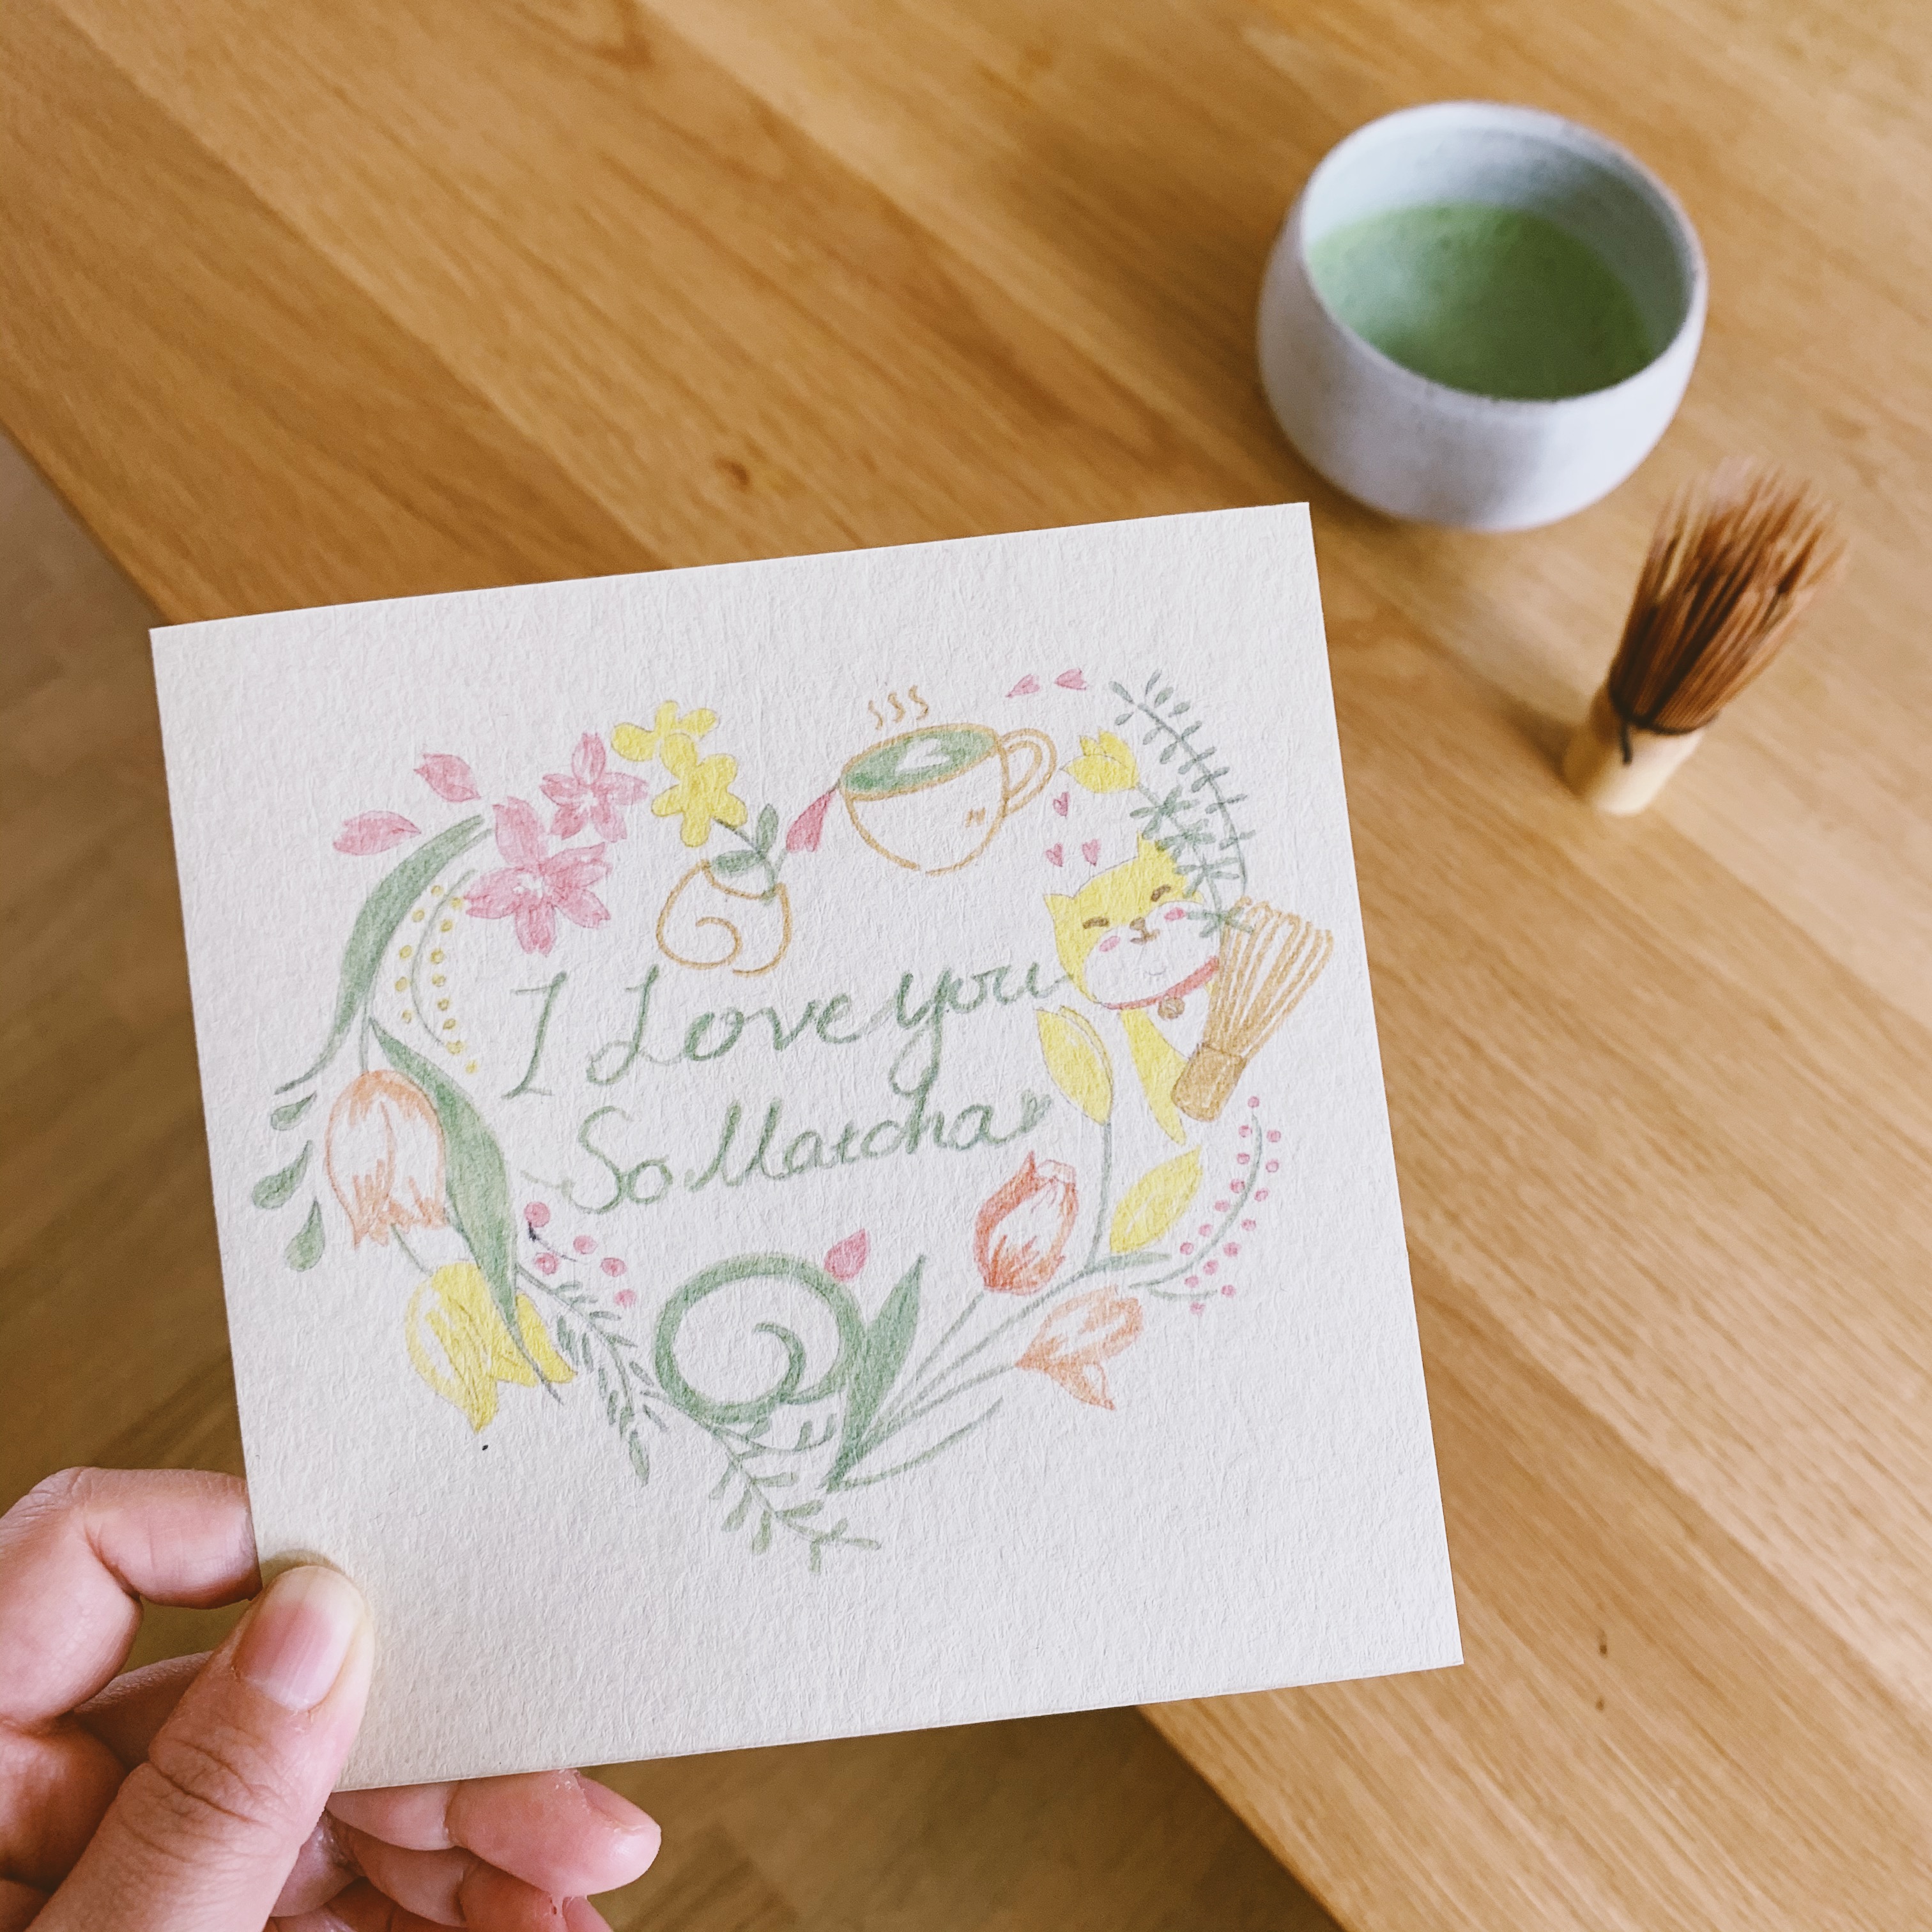 I Love you
So Matcha